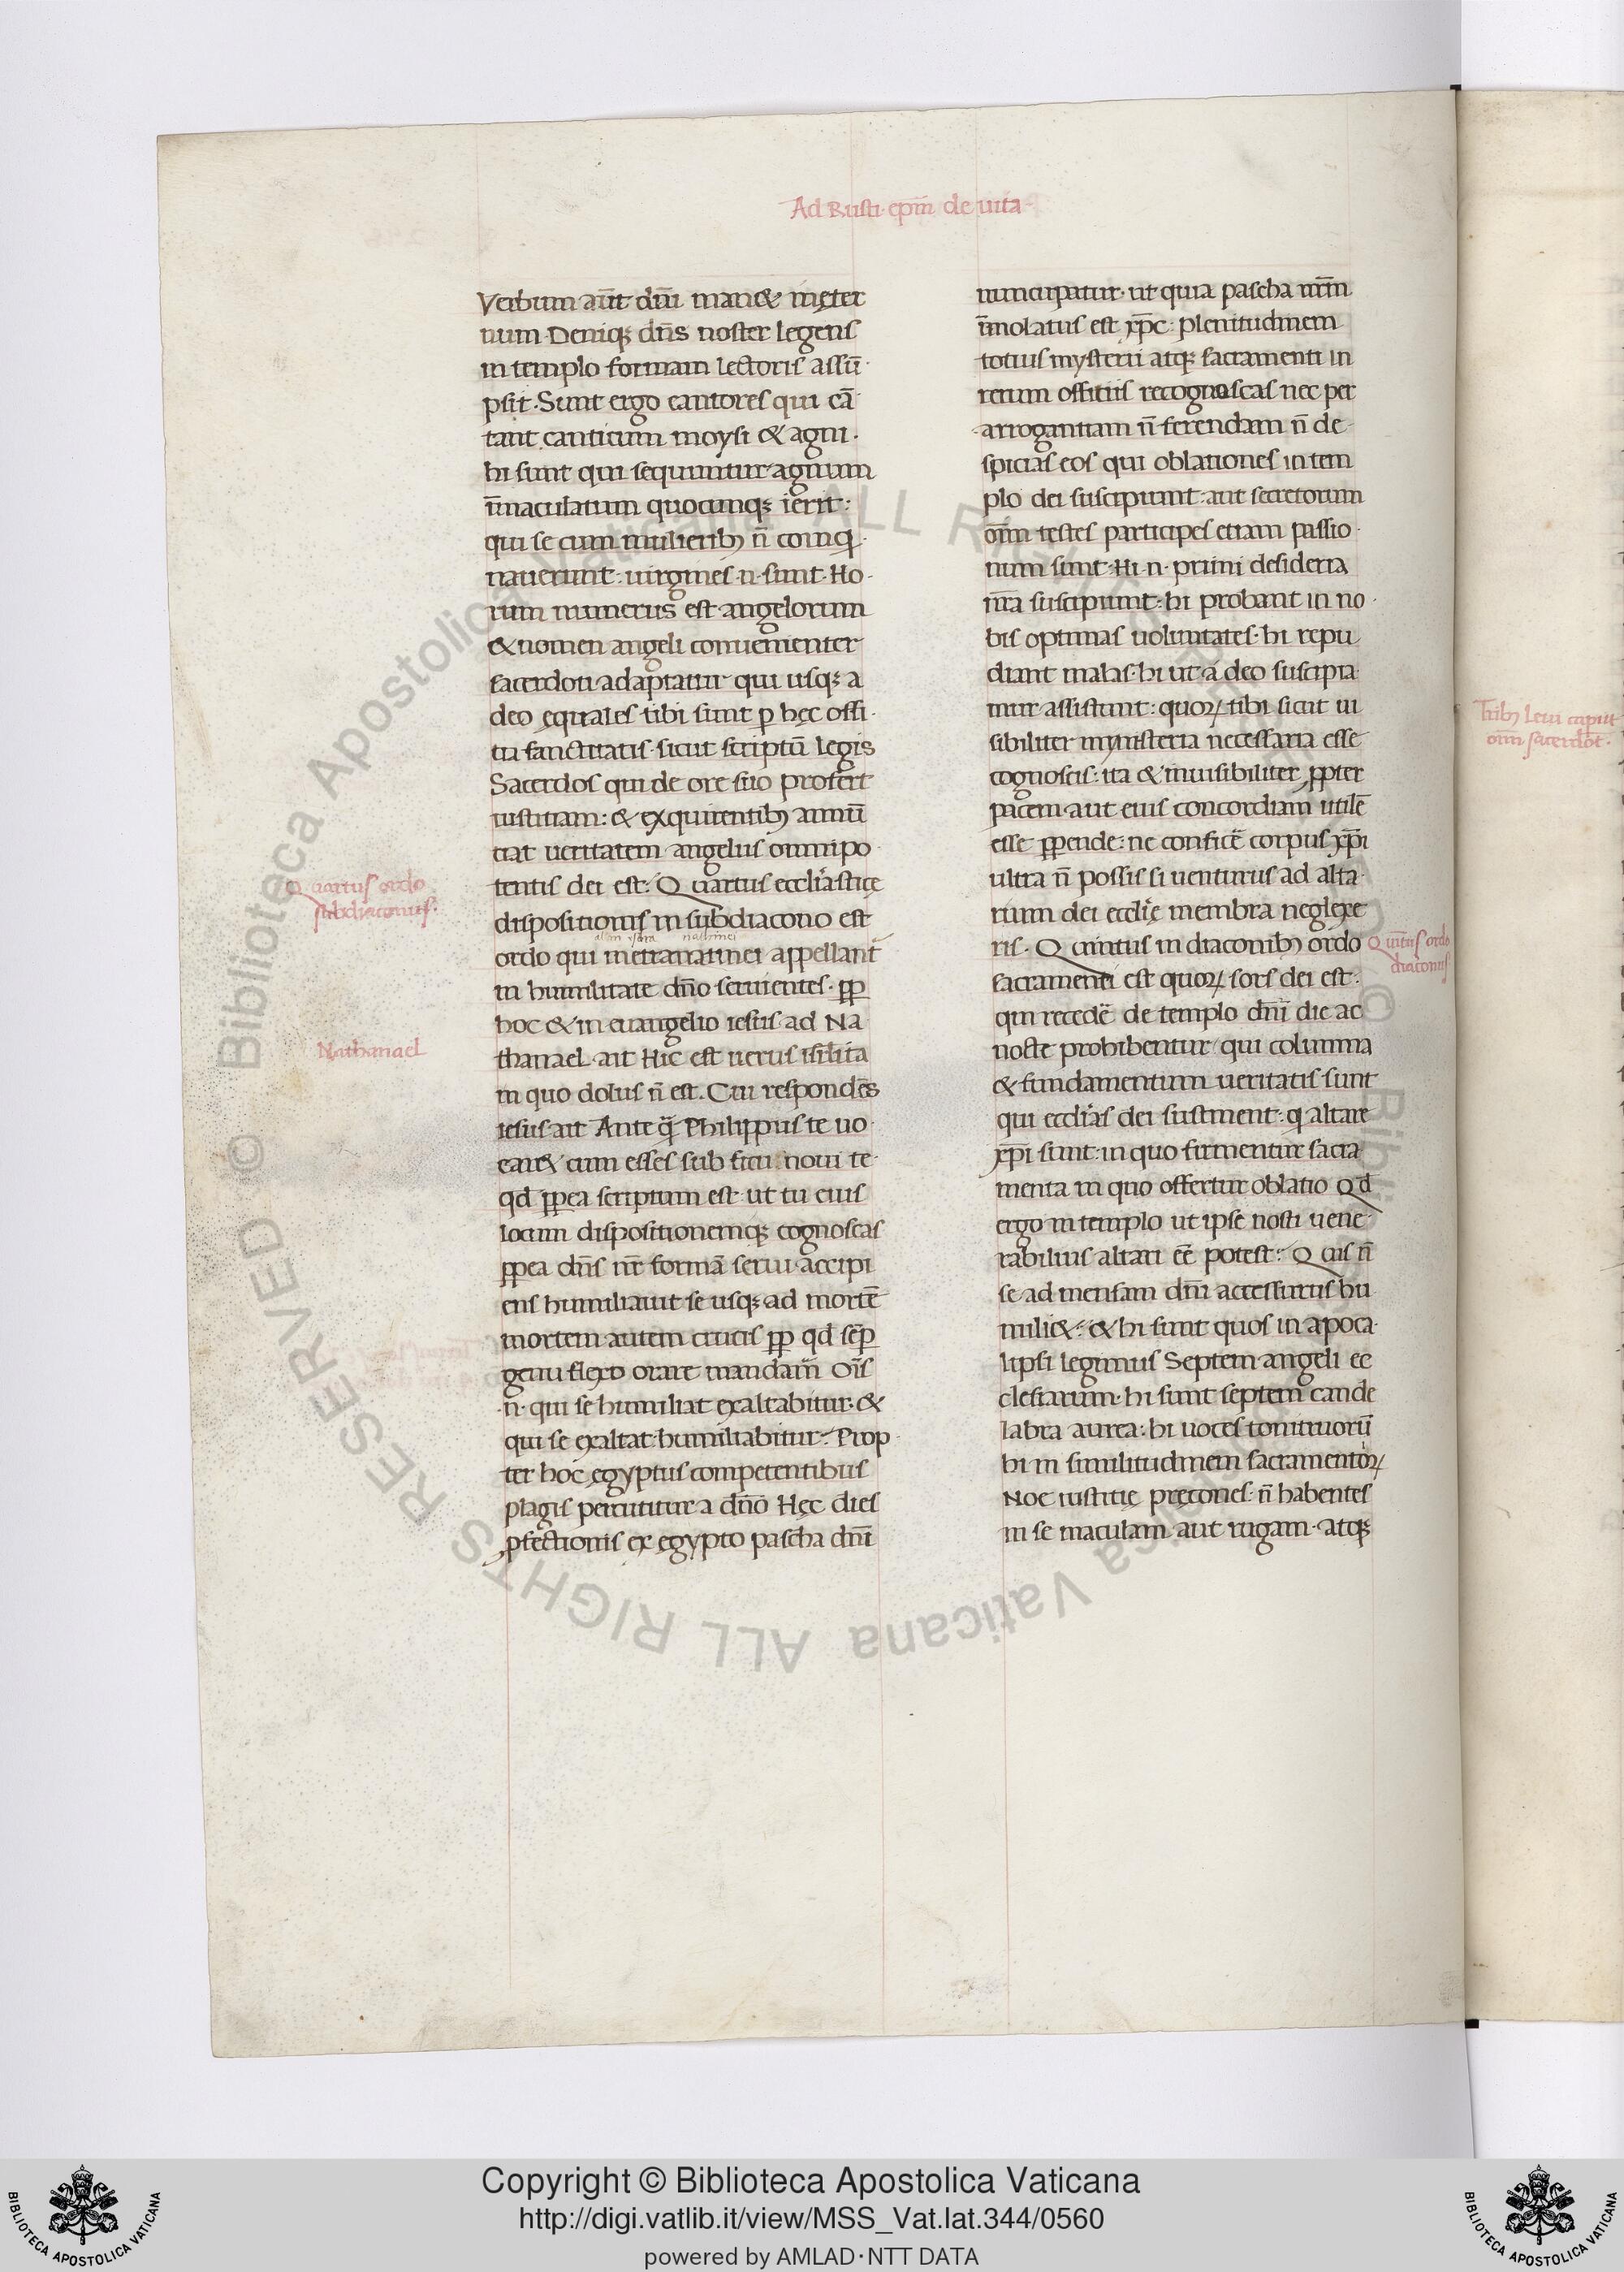 Ad Rusti. epm̄ de uita
Verbum aūt dn̄i man& ineter
num. Deniq; dn̄s noster legens
in templo formam lectoris assū
psit. Sunt ergo cantores qui cā
tant canticum moysi & agni.
hi sunt qui sequuntur agnum
īmaculatum quocunq; ierit:
qui se cum mulierib; n̄ coinq̄
nauerunt: uirgines .n. sunt. Ho
rum numerus est angelorum
& nomen angeli conuenienter
sacerdoti adaptatur qui usq; a
deo ęquales tibi sunt p hęc offi
tia sanctitatis. sicut scriptū legis
Sacerdos qui de ore suo profert
iustitiam: & exquirentib; annū
tiat ueritatem angelus omnipo
tentis dei est: Quartus eccliasticę
dispositionis in subdiacono est
ordo qui metranatinei appellant̄
in humilitate dn̄o seruientes. pp
hoc & in euangelio iesus ad Na
thanael ait Hic est uerus isrlita
in quo dolus n̄ est. Cui respondēs
iesus ait Ante q̄ Philippus te uo
car& cum esses sub ficu. noui te
qd ppea scriptum est ut tu eius
locum dispositionemq; cognoscas
ppea dn̄s nr̄ formā serui accipi
ens humiliauit se usq; ad mortē
mortem autem crucis pp qd sēp
genu flexo orare mandam̄ Ois̄
.n. qui se humiliat exaltabitur. &
qui se exaltat humiliabitur. Prop
ter hoc ęgyptus competentibus
plagis percutitur a dn̄o Hęc dies
pfectionis ex ęgypto pascha dn̄i
nuncupatur. ut quia pascha nr̄m
īmolatus est xp̄c: plenitudinem
totius mysterii atq; sacramenti in
rerum offitiis recognoscas nec per
arrogantiam n̄ ferendam n̄ de
spicias eos qui oblationes in tem
plo dei suscipiunt: aut secretorum
om̄ testes participes etiam passio
num sunt. Hi .n. primi desideria
nr̄a suscipiunt: hi probant in no
bis optimas uoluntates. hi repu
diant malas. hi ut a deo suscipia
mur assistunt: quoꝝ tibi sicut ui
sibiliter mynisteria necessaria esse
cognoscis: ita & inuisibiliter ppter
pacem aut eius concordiam utilē
esse ppende: ne conficē corpus xp̄i
ultra n̄ possis si uenturus ad alta
rium dei eccl̄ię membra neglexe
ris. Quintus in diaconib; ordo
sacramenti est quoꝝ sors dei est:
qui recedē de templo dn̄i die ac
nocte prohibentur. qui columna
& fundamentum ueritatis sunt
qui eccl̄ias dei sustinent: q altare
xp̄i sunt: in quo firmentur sacra
menta in quo offertur oblatio Qd
ergo in templo ut ipse nosti uene
rabilius altari eē potest: Quis n̄
se ad mensam dn̄i accessurus hu
mili&: & hi sunt quos in apoca
lipsi legimus Septem angeli ec
clesiarum. hi sunt septem cande
labra aurea: hi uoces tonitruorū
hi in similitudinem sacramentoꝝ
Noe iustitię pręcones. n̄ habentes
in se maculam aut rugam. atq;
Quartus ordo
subdiaconus.
Nathanael
Quītus ordo
diaconus
Trib; Leui caput
om̄ sacerdot.
Copyright © Biblioteca Apostolica Vaticana
http://digi.vatlib.it/view/MSS_Vat.lat.344/0560
powered by AMLAD·NTT DATA
BIBLIOTECA APOSTOLICA VATICANA
BIBLIOTECA APOSTOLICA VATICANA
© Biblioteca Apostolica Vaticana ALL RIGHTS RESERVED
© Biblioteca Apostolica Vaticana ALL RIGHTS RESERVED